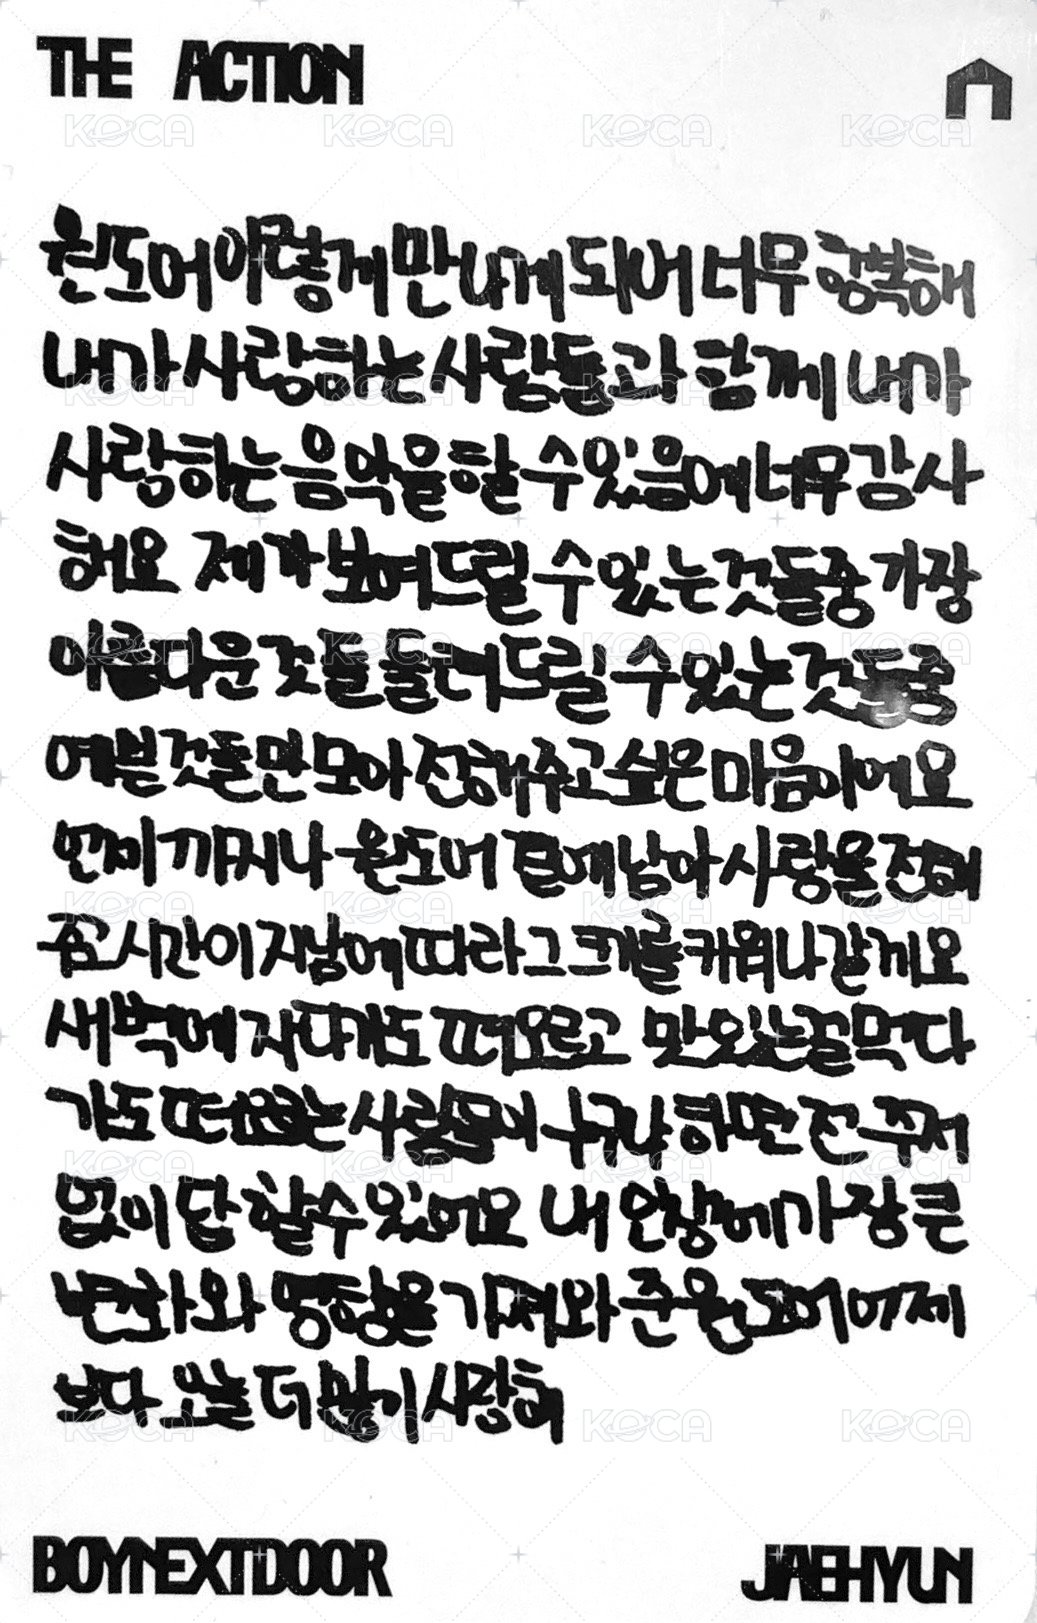 THE ACTION
원도어 이렇게 만나게 되어 너무 행복해
내가 사랑하는 사람들과 함께 내가
사랑하는 음악을 할 수 있음에 너무 감사
해요 제가 보여드릴 수 있는 것들중 가장
아름다운 것들 들려드릴 수 있는 것들중
예쁜 것들만 모아 전해주고 싶은 마음이에요
언제까지나 원도어 곁에 남아 사랑을 전해
줄고 시간이 지남에 따라 그 크기를 키워나갈게요
새벽에 자다가도 떠오르고 맛있는걸 먹다
가도 떠오르는 사람들이 누구냐 하면 전 주저
없이 답 할 수 있어요 내 인생에 가장 큰
변화와 행복을 가져와 준 원도어 어제
보다 오늘 더 많이 사랑해
BOYNEXTDOOR
JAEHYUN
KOCA